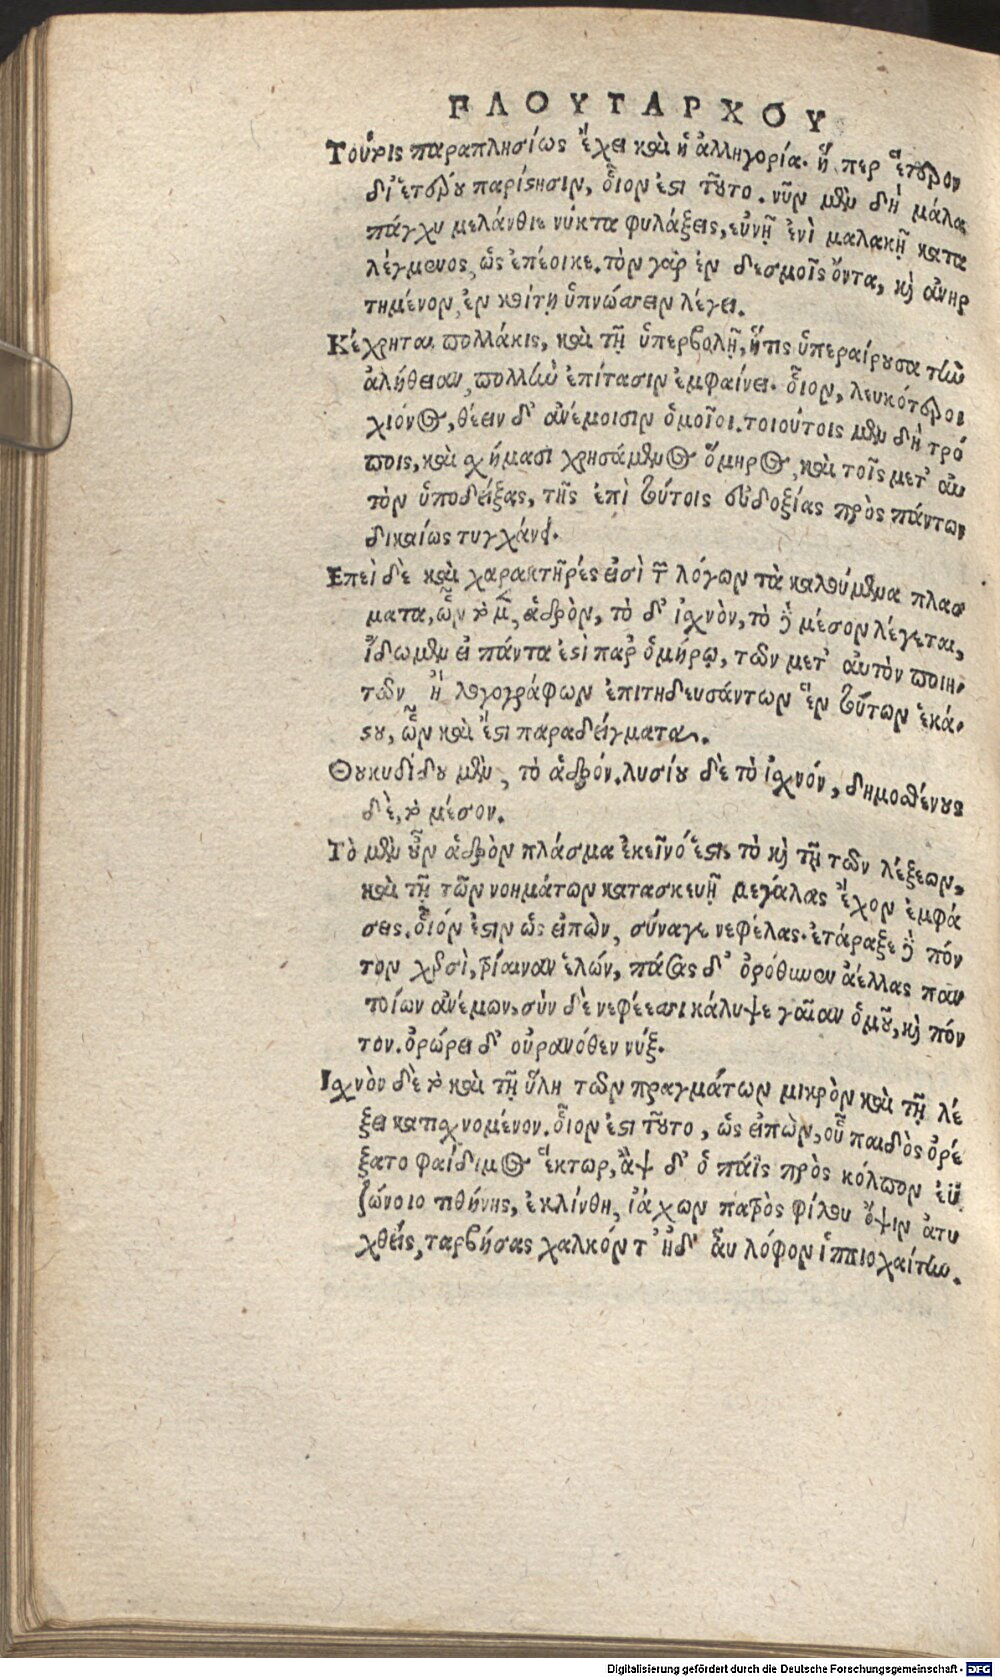 ΠΛΟΥΤΑΡΧΟΥ
Τούτοις παραπλησίως ἔχει καὶ ἡ ἀλληγορία. ἥ περ ἕτερον
δι' ἑτέρου παρίστησιν, οἷον ἐστὶ τοῦτο. νῦν μὲν δὴ μάλα
πάγχυ μελάνθιε νύκτα φυλάξεις, εὐνῇ ἐνὶ μαλακῇ κατα
λέγμενος, ὥς ἐπέοικε. τὸν γὰρ ἐν δεσμοῖς ὄντα, καὶ ἀνηρ
τημένον, ἐν κοίτῃ ὑπνώσειν λέγει.
Κέχρηται πολλάκις, καὶ τῇ ὑπερβολῇ, ἥτις ὑπεραίρουσα τὴν
ἀλήθειαν, πολλὴν ἐπίτασιν ἐμφαίνει. οἷον, λευκότεροι
χιόνος, θέειν δ' ἀνέμοισιν ὁμοῖοι. τοιούτοις μὲν δὴ τρό
ποις, καὶ σχήμασι χρησάμενος ὅμηρος, καὶ τοῖς μετ' αὐ
τὸν ὑποδείξας, τῆς ἐπὶ τούτοις εὐδοξίας πρὸς πάντων
δικαίως τυγχάνει.
Επεὶ δὲ καὶ χαρακτῆρές εἰσὶ τῶν λόγων τὰ καλούμενα πλάσ
ματα, ὧν τὸ μὲν, ἁδρὸν, τὸ δ' ἰσχνὸν, τὸ δὲ μέσον λέγεται,
ἴδωμεν εἰ πάντα ἐστὶ παρ' ὁμήρῳ, τῶν μετ' αὐτὸν ποιη-
τῶν ἢ λογογράφων ἐπιτηδευσάντων ἓν τούτων ἑκά-
στου, ὧν καὶ ἔστι παραδείγματα.
Θουκυδίδου μὲν, τὸ ἁδρόν. λυσίου δὲ τὸ ἰσχνόν, δημοσθένους
δὲ, τὸ μέσον.
Τὸ μὲν οὖν ἁδρὸν πλάσμα ἐκεῖνό ἐστι, τὸ καὶ τῇ τῶν λέξεων,
καὶ τῇ τῶν νοημάτων κατασκευῇ μεγάλας ἔχον ἐμφά
σεις. οἷόν ἐστιν ὡς εἰπὼν, σύναγε νεφέλας. ἐτάραξε δὲ πόν
τον χερσὶ, τρίαιναν ἑλών, πάσας δ' ὀρόθυνεν ἀέλλας παν
τοίων ἀνέμων, σὺν δὲ νεφέεσσι κάλυψε γαῖαν ὁμοῦ, καὶ πόν
τον. ὀρώρει δ' οὐρανόθεν νύξ.
Ισχνὸν δὲ τὸ καὶ τῇ ὕλη τῶν πραγμάτων μικρὸν καὶ τῇ λέ
ξει κατισχνομένον. οἷον ἐστὶ τοῦτο, ὡς εἰπὼν, οὗ παιδὸς ὀρέ
ξατο φαίδιμος ἕκτωρ, ἂψ δ' ὁ πάϊς πρὸς κόλπον ἐϋ
ζώνοιο τιθήνης, ἐκλίνθη, ἰάχων πατρὸς φίλου ὄψιν ἀτυ
χθείς, ταρβήσας χαλκόν τ' ἠδ' ἂυ λόφον ἱππιοχαίτην.
Digitalisierung gefördert durch die Deutsche Forschungsgemeinschaft - DFG